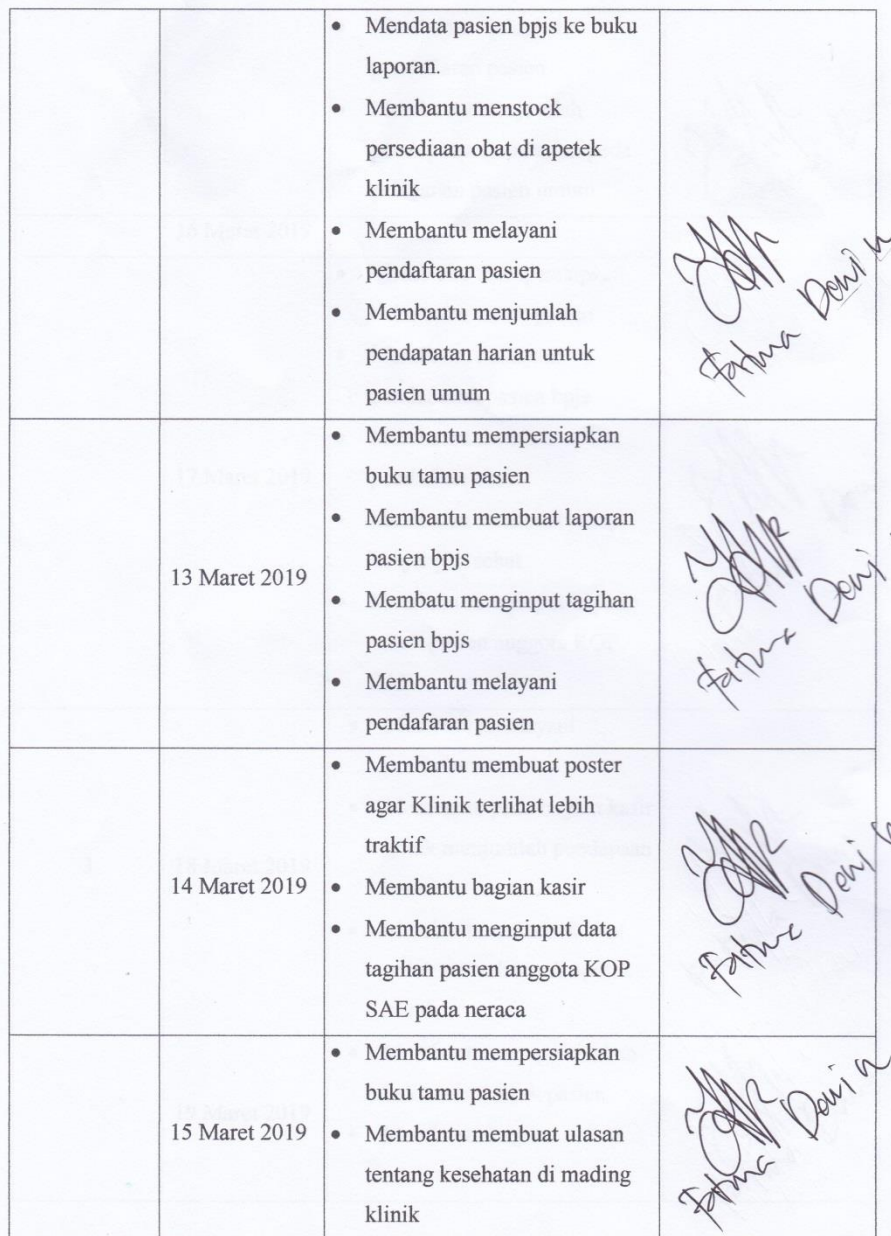 Mendata pasien bpjs ke buku
laporan.
Membantu menstock
persediaan obat di apetek
klinik
Membantu melayani
pendaftaran pasien
Membantu menjumlah
pendapatan harian untuk
pasien umum
Fatma Dewi
13 Maret 2019
Membantu mempersiapkan
buku tamu pasien
Membantu membuat laporan
pasien bpjs
Membatu menginput tagihan
pasien bpjs
Membantu melayani
pendafaran pasien
Fatma Dewi
14 Maret 2019
Membantu membuat poster
agar Klinik terlihat lebih
traktif
Membantu bagian kasir
Membantu menginput data
tagihan pasien anggota KOP
SAE pada neraca
Fatma Dewi
15 Maret 2019
Membantu mempersiapkan
buku tamu pasien
Membantu membuat ulasan
tentang kesehatan di mading
klinik
Fatma Dewi